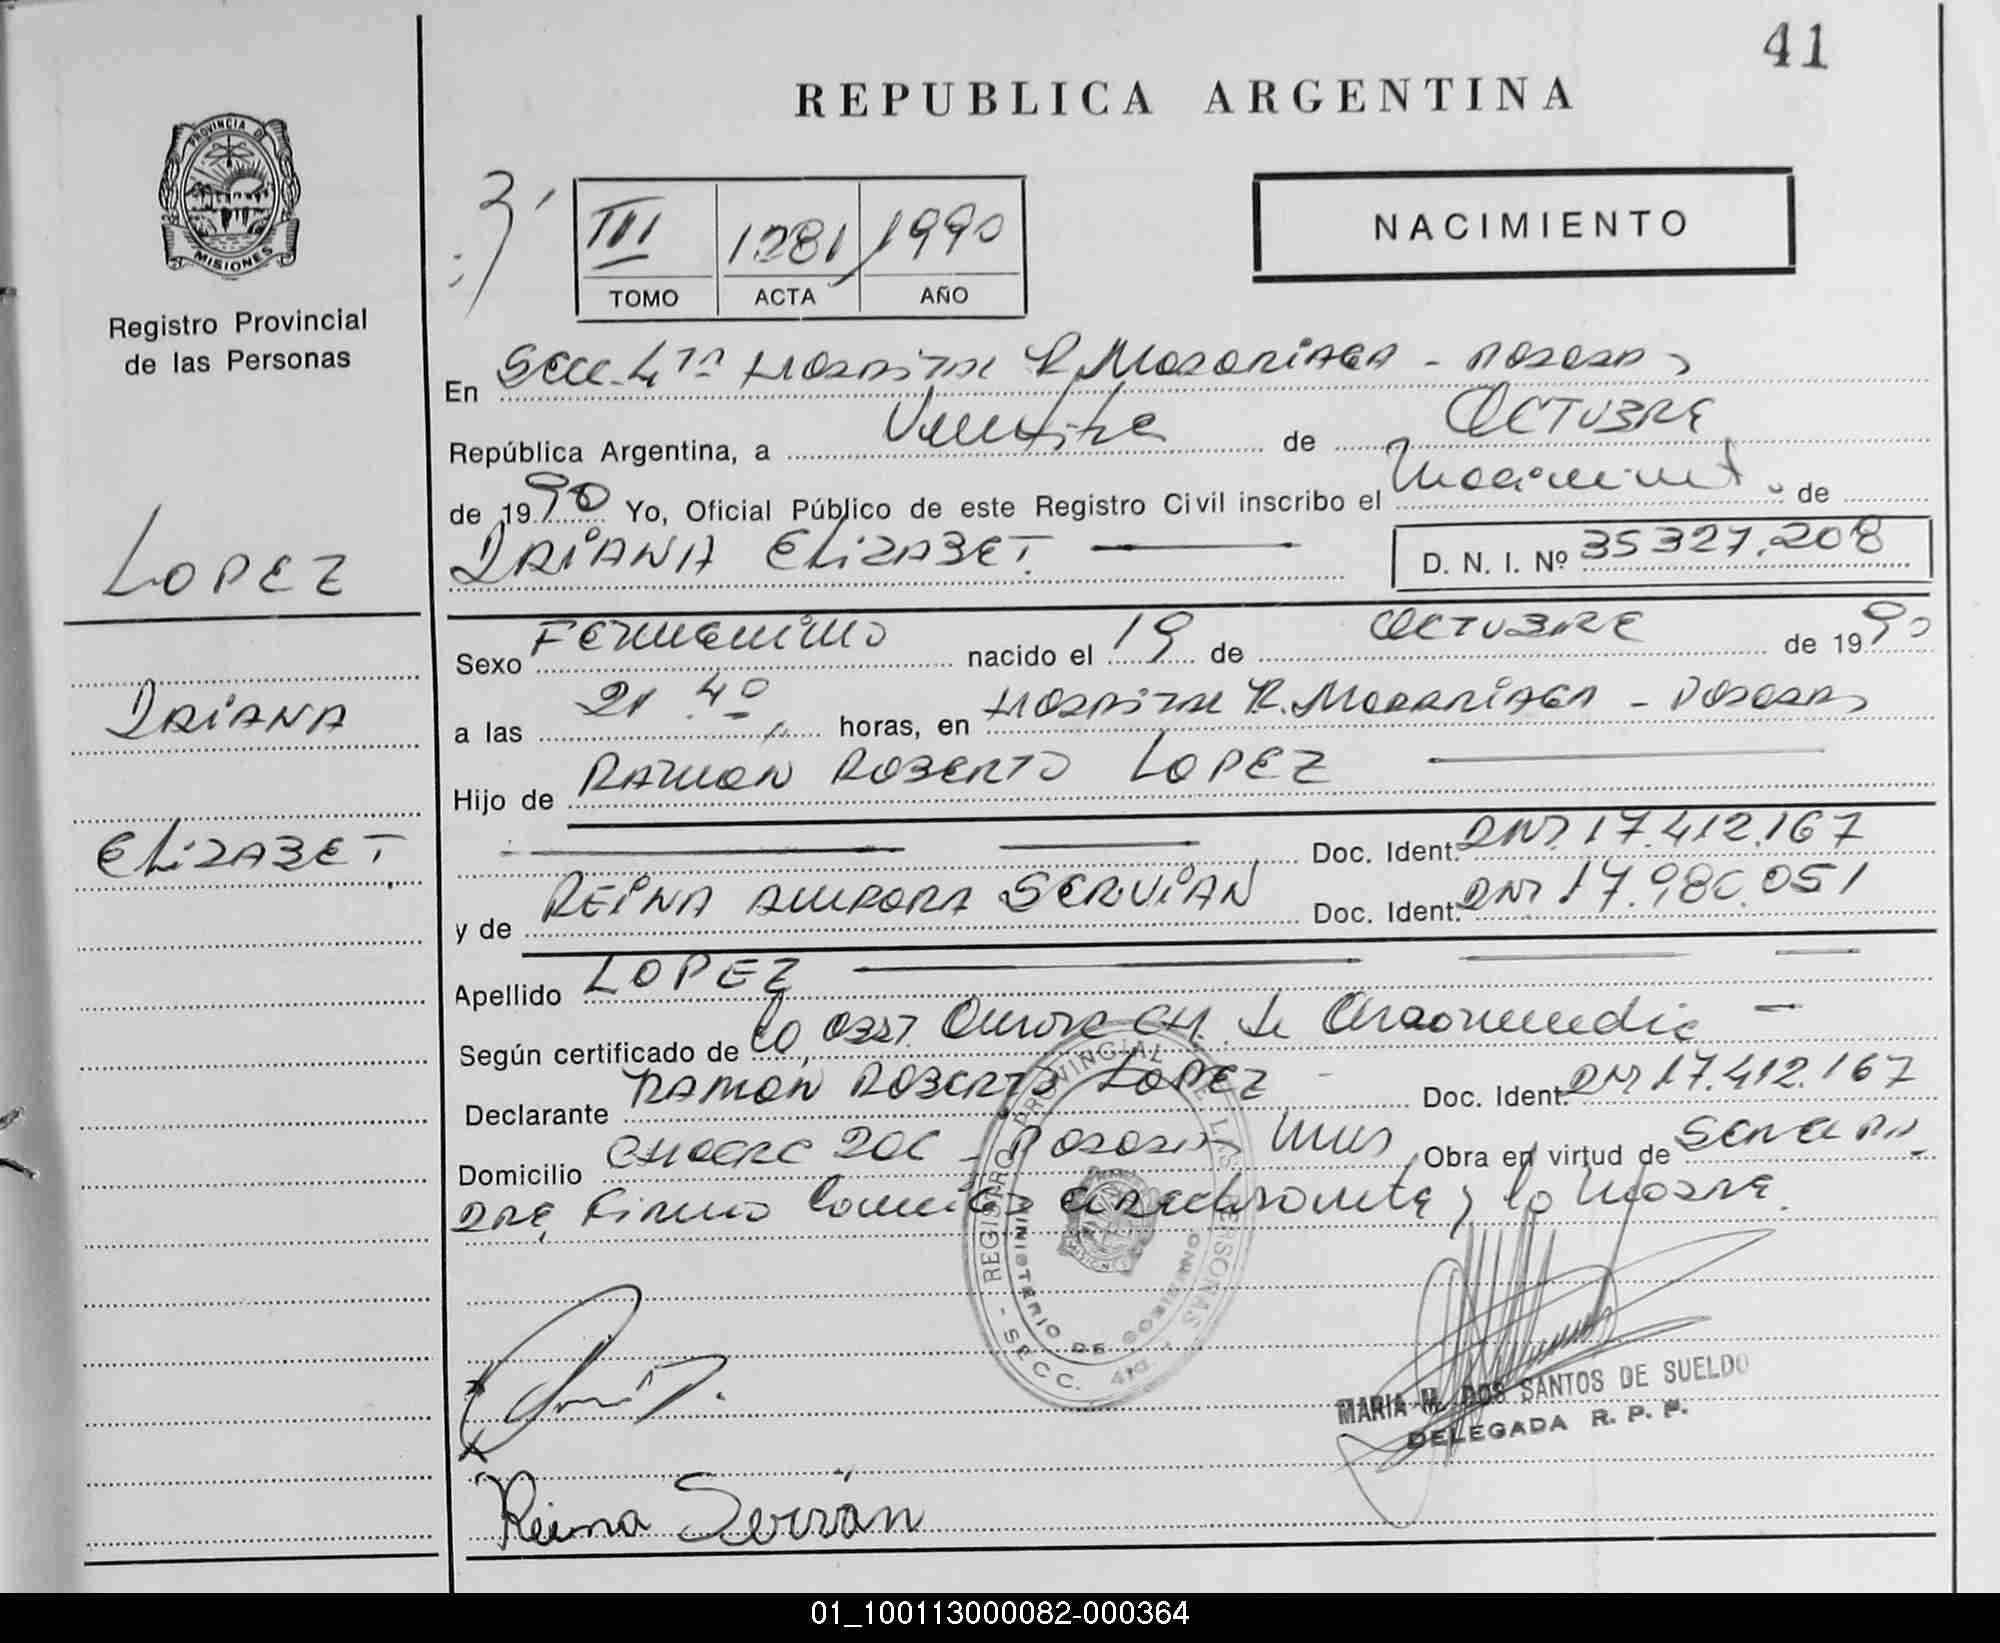 41
REPUBLICA ARGENTINA
PROVINCIA DE
MISIONES
Registro Provincial
de las Personas
III 1281 1990
TOMO ACTA AÑO
NACIMIENTO
En Secc. 4ta Hospital R. Madariaga - Posadas
República Argentina, a Veintitre de OCTUBRE
de 1990 Yo, Oficial Público de este Registro Civil inscribo el Nacimiento de
DAIANA ELIZABET. D. N. I. Nº 35327.208
LOPEZ
DAIANA
ELIZABET
Sexo FEMENINO nacido el 19 de OCTUBRE de 1990
a las 21 40 horas, en HOSPITAL R. MADARIAGA - POSADAS
Hijo de RAMON ROBERTO LOPEZ
Doc. Ident. DNI. 17.412.167
y de REINA AURORA SERVIAN Doc. Ident. DNI 17.980.051
Apellido LOPEZ
Según certificado de la Obst. Aurora CH. de
Declarante RAMON ROBERTO LOPEZ Doc. Ident. DNI 17.412.167
Domicilio - Posadas Mnes Obra en virtud de SER EL PA
DRE, Firma y la Madre.
REGISTRO PROVINCIAL DE LAS PERSONAS
MINISTERIO DE GOBIERNO
- SECC. 4ta. -
MISIONES
MARIA M. DOS SANTOS DE SUELDO
DELEGADA R. P. P.
Reina Servian
01_100113000082-000364